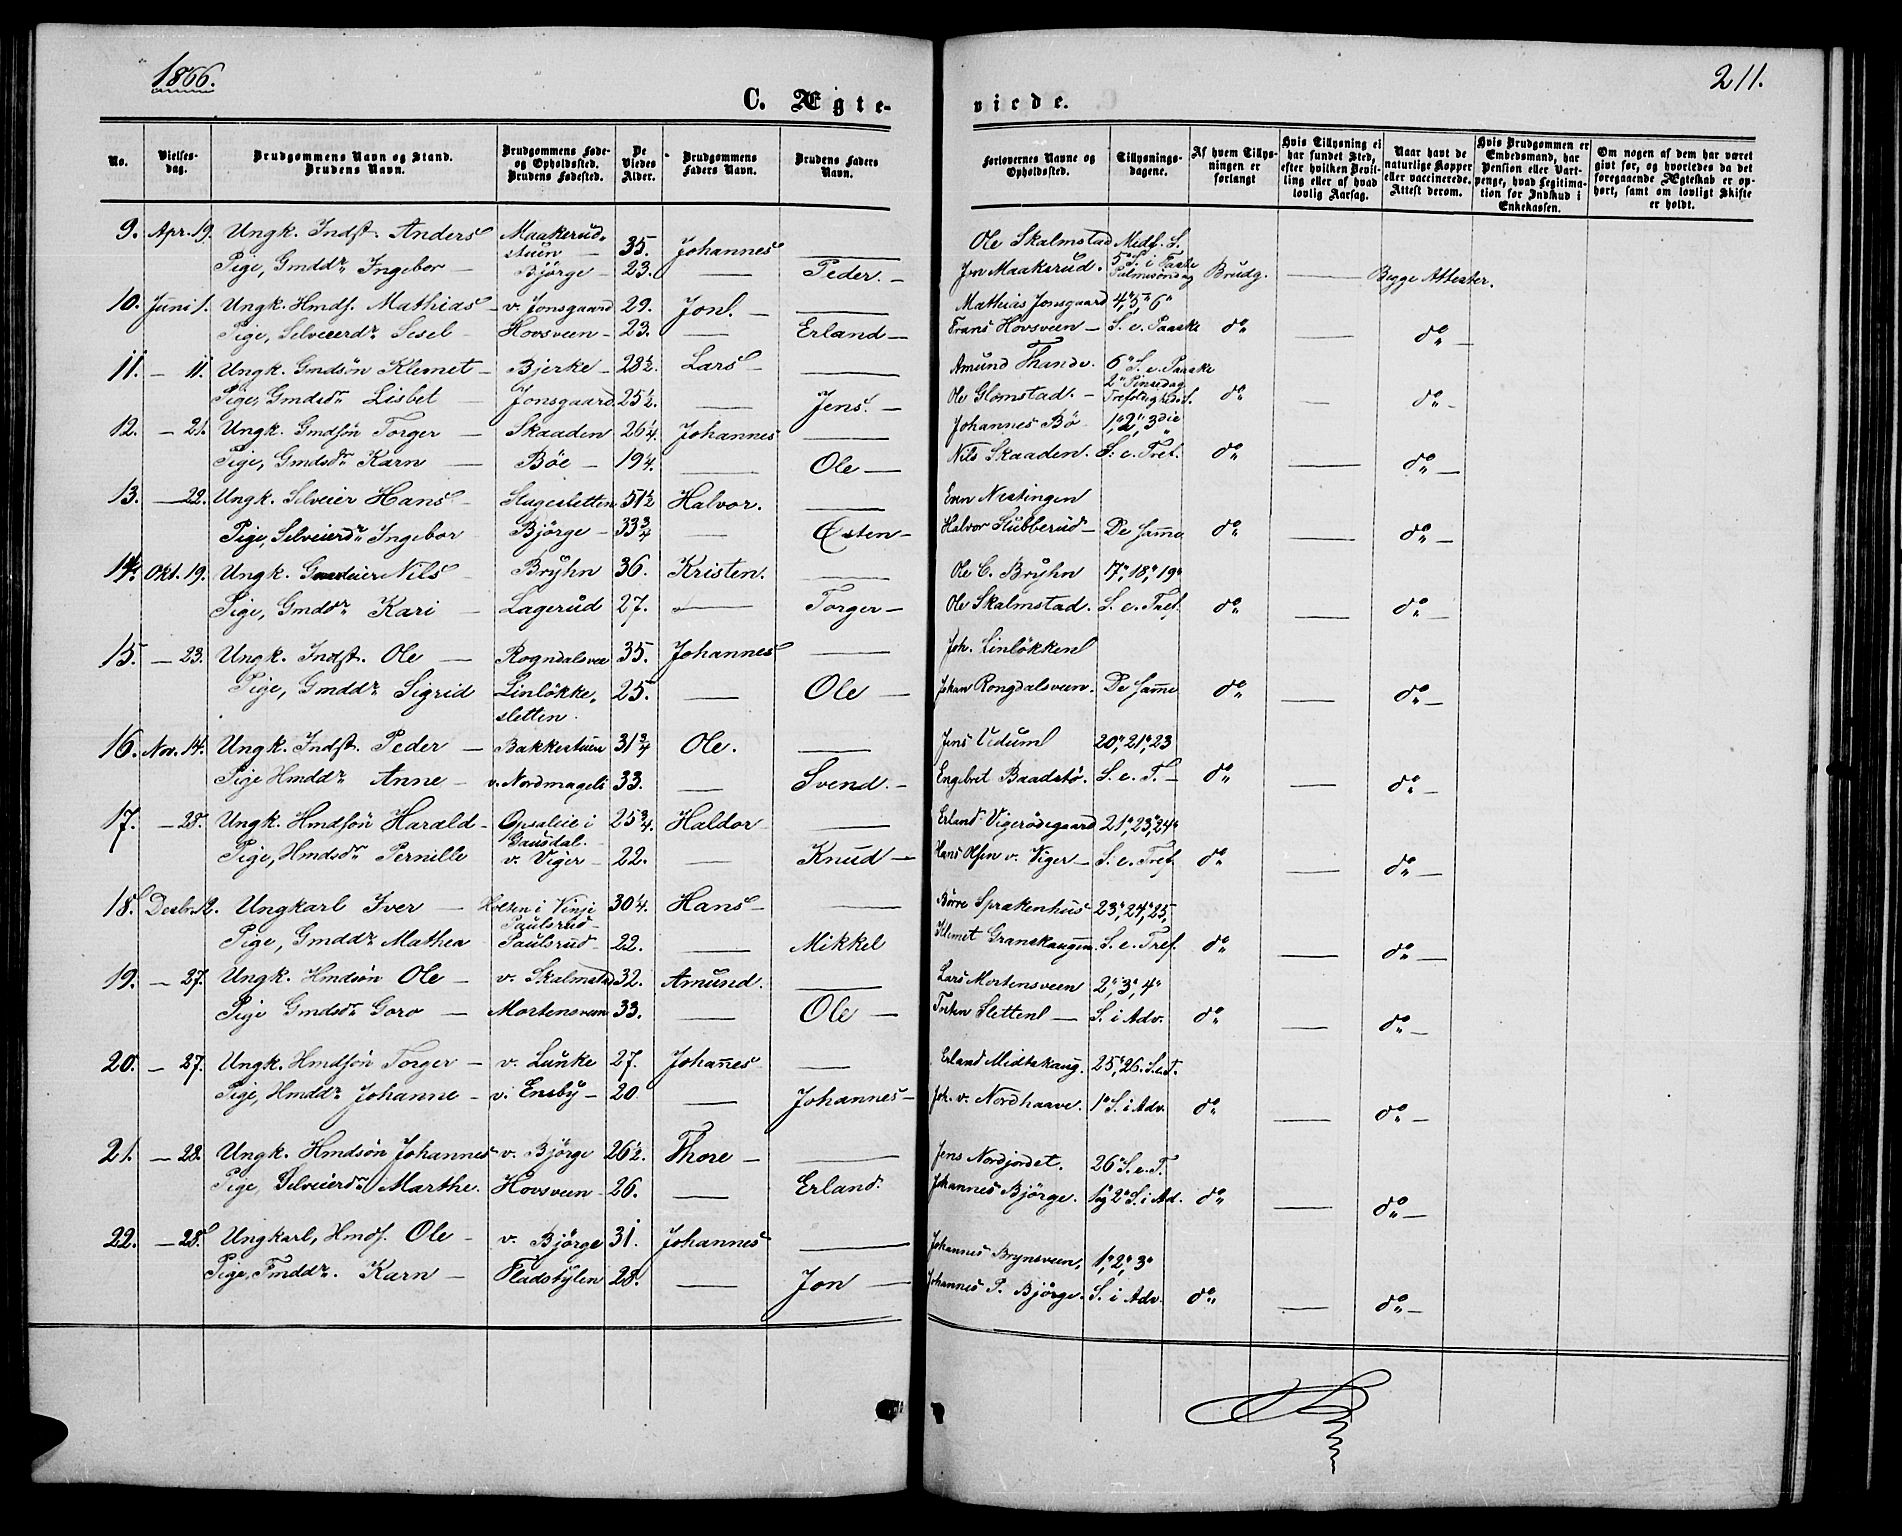 1866.
211.
C. Ægte-
viede.
No.
Vielses-
dag.
Brudgommens Navn og Stand.
Brudens Navn.
Brudgommens Føde-
og Opholdssted.
Brudens Fødested.
De
Viedes
Alder.
Brudgommens
Faders Navn.
Brudens Faders
Navn.
Forlovernes Navne og
Opholdssted.
Tillysnings-
dagene.
Af hvem Tillys-
ningen er
forlangt
Hvis Tillysning ei
har fundet Sted,
efter hvilken Bevil-
ling eller af hvad
lovlig Aarsag.
Naar havt de
naturlige Kopper
eller vaccinerede.
Attest derom.
Hvis Brudgommen er
Embedsmand, har
Pension eller Vart-
penge, hvad Legitima-
tion for Indskud i
Enkekassen.
Om nogen af dem har været
givt før, og hvorledes da det
foregaaende Ægteskab er op-
hørt, samt om lovligt Skifte
er holdt.
9. Apr. 19. Ungk. Indst. Anders Maakerud- 35. Johannes — Ole Skalmstad Midf. S.
stuen 5" S. i Faste
Pige, Gmddr Ingebor — Bjørge — 23. — Peder. — Jon Maakerud. Palmesöndag Brudg. — Begge Attester.
10. Juni 1. Ungk. Hmds. Mathias v. Jonsgaard 29. Jon. — Mathias Jonsgaard 4", 5" 6"
Pige, Selveierdr Sisel Hovsveen — 23. — Erland — Frans Hovsveen — S. e. Paaske do — do —
11. — 11. Ungk. Gmdsön Klemet — Bjerke — 28½. Lars — Amund Thande. 6" S. e. Paaske
2" Pinsedag
Pige, Gmdsdr Lisbet — Jonsgaard 25½. — Jens. — Ole Glomstad. — Trefoldighedsf. do — do —
12. — 21. Ungk. Gmdsön Torger — Skaaden 26¼. Johannes — Johannes Bö 1", 2", 3die
Pige, Gmdsdr Karn — Böe — 19¼. — Ole — Nils Skaaden. S. e. Tref. do — do —
13. — 22. Ungk. Selveier Hans Slagesletten 51½ Halvor. — Even Nestingen
Pige, Selveierdr Ingebor Bjørge — 33¾ — Østen — Halvor Stubberud — De samme do — do —
14. Okt. 19. Ungk. Nils Bryhn 36. Kristen. — Ole C. Bryhn 17", 18", 19"
Pige, Gmddr Kari — Lagerud 27. — Torger — Ole Skalmstad. S. e. Tref. do — do —
15. — 23. Ungk. Indst. Ole — Rogndalsvee 35. Johannes — Joh. Linløkken
Pige, Gmddr Sigrid Linløkke- 25. — Ole — Johan Rongdalsveen. De samme do — do —
sletten.
16. Nov. 14. Ungk. Indst. Peder — Bakkestuen 31¾ Ole. — Jens Vidum 20", 21", 23
Pige Hmddr Anne — v. Nordmageli 33. — Svend. — Engebret Baadstö. S. e. T. — do — do —
17. — 28. Ungk. Hmdsön Harald — Opsaleie i 25¾. Haldor — Erland Vigerödegaard 21", 23", 24"
Gausdal.
Pige, Hmdsdr Pernille v. Viger — 22. — Knud — Hans Olsen v. Viger — S. e. Tref. do — do —
18. Desbr. 12. Ungkarl Iver — Holten i Vinje 30¼. Hans — Børe Sprakenhus 23", 24", 25,
Paulsrud —
Pige, Gmddr Mathea Paulsrud 22. — Mikkel Klemet Granskaugen. S. e. Tref. do — do —
19. — 27. Ungk. Hmdsön Ole — v. Skalmstad 32. Amund. — Lars Mortensveen 2", 3", 4"
Pige Gmdsdr Goro — Mortensveen 33. — Ole — Treten Sletten — S. i Adv. do — do —
20. — 27. Ungk. Hmdsön Torger — v. Lunke 27. Johannes — Erland Midtskaug. 25", 26. S. e. T.
Pige, Hmddr Johanne — v. Ensby — 20. — Johannes — Joh. v. Nordhaave. 1" S. i Adv. do — do —
21. — 28. Ungk. Hmdsön Johannes v. Bjørge 26½. Thore — Jens Nordjordet. 26" S. e. T.
Pige, Selveierdr Marthe. Hovsveen 26. — Erland. Johannes Bjørge. 1" og 2" S. i Ad. do — do —
22. — 28. Ungkarl, Hmds. Ole — v. Bjørge 31. Johannes — Johannes Brynsveen, 1", 2", 3"
Pige, Fmddr. Karn — Fladstylen 28. — Jon — Johannes P. Bjørge. S. i Adv. do — do —